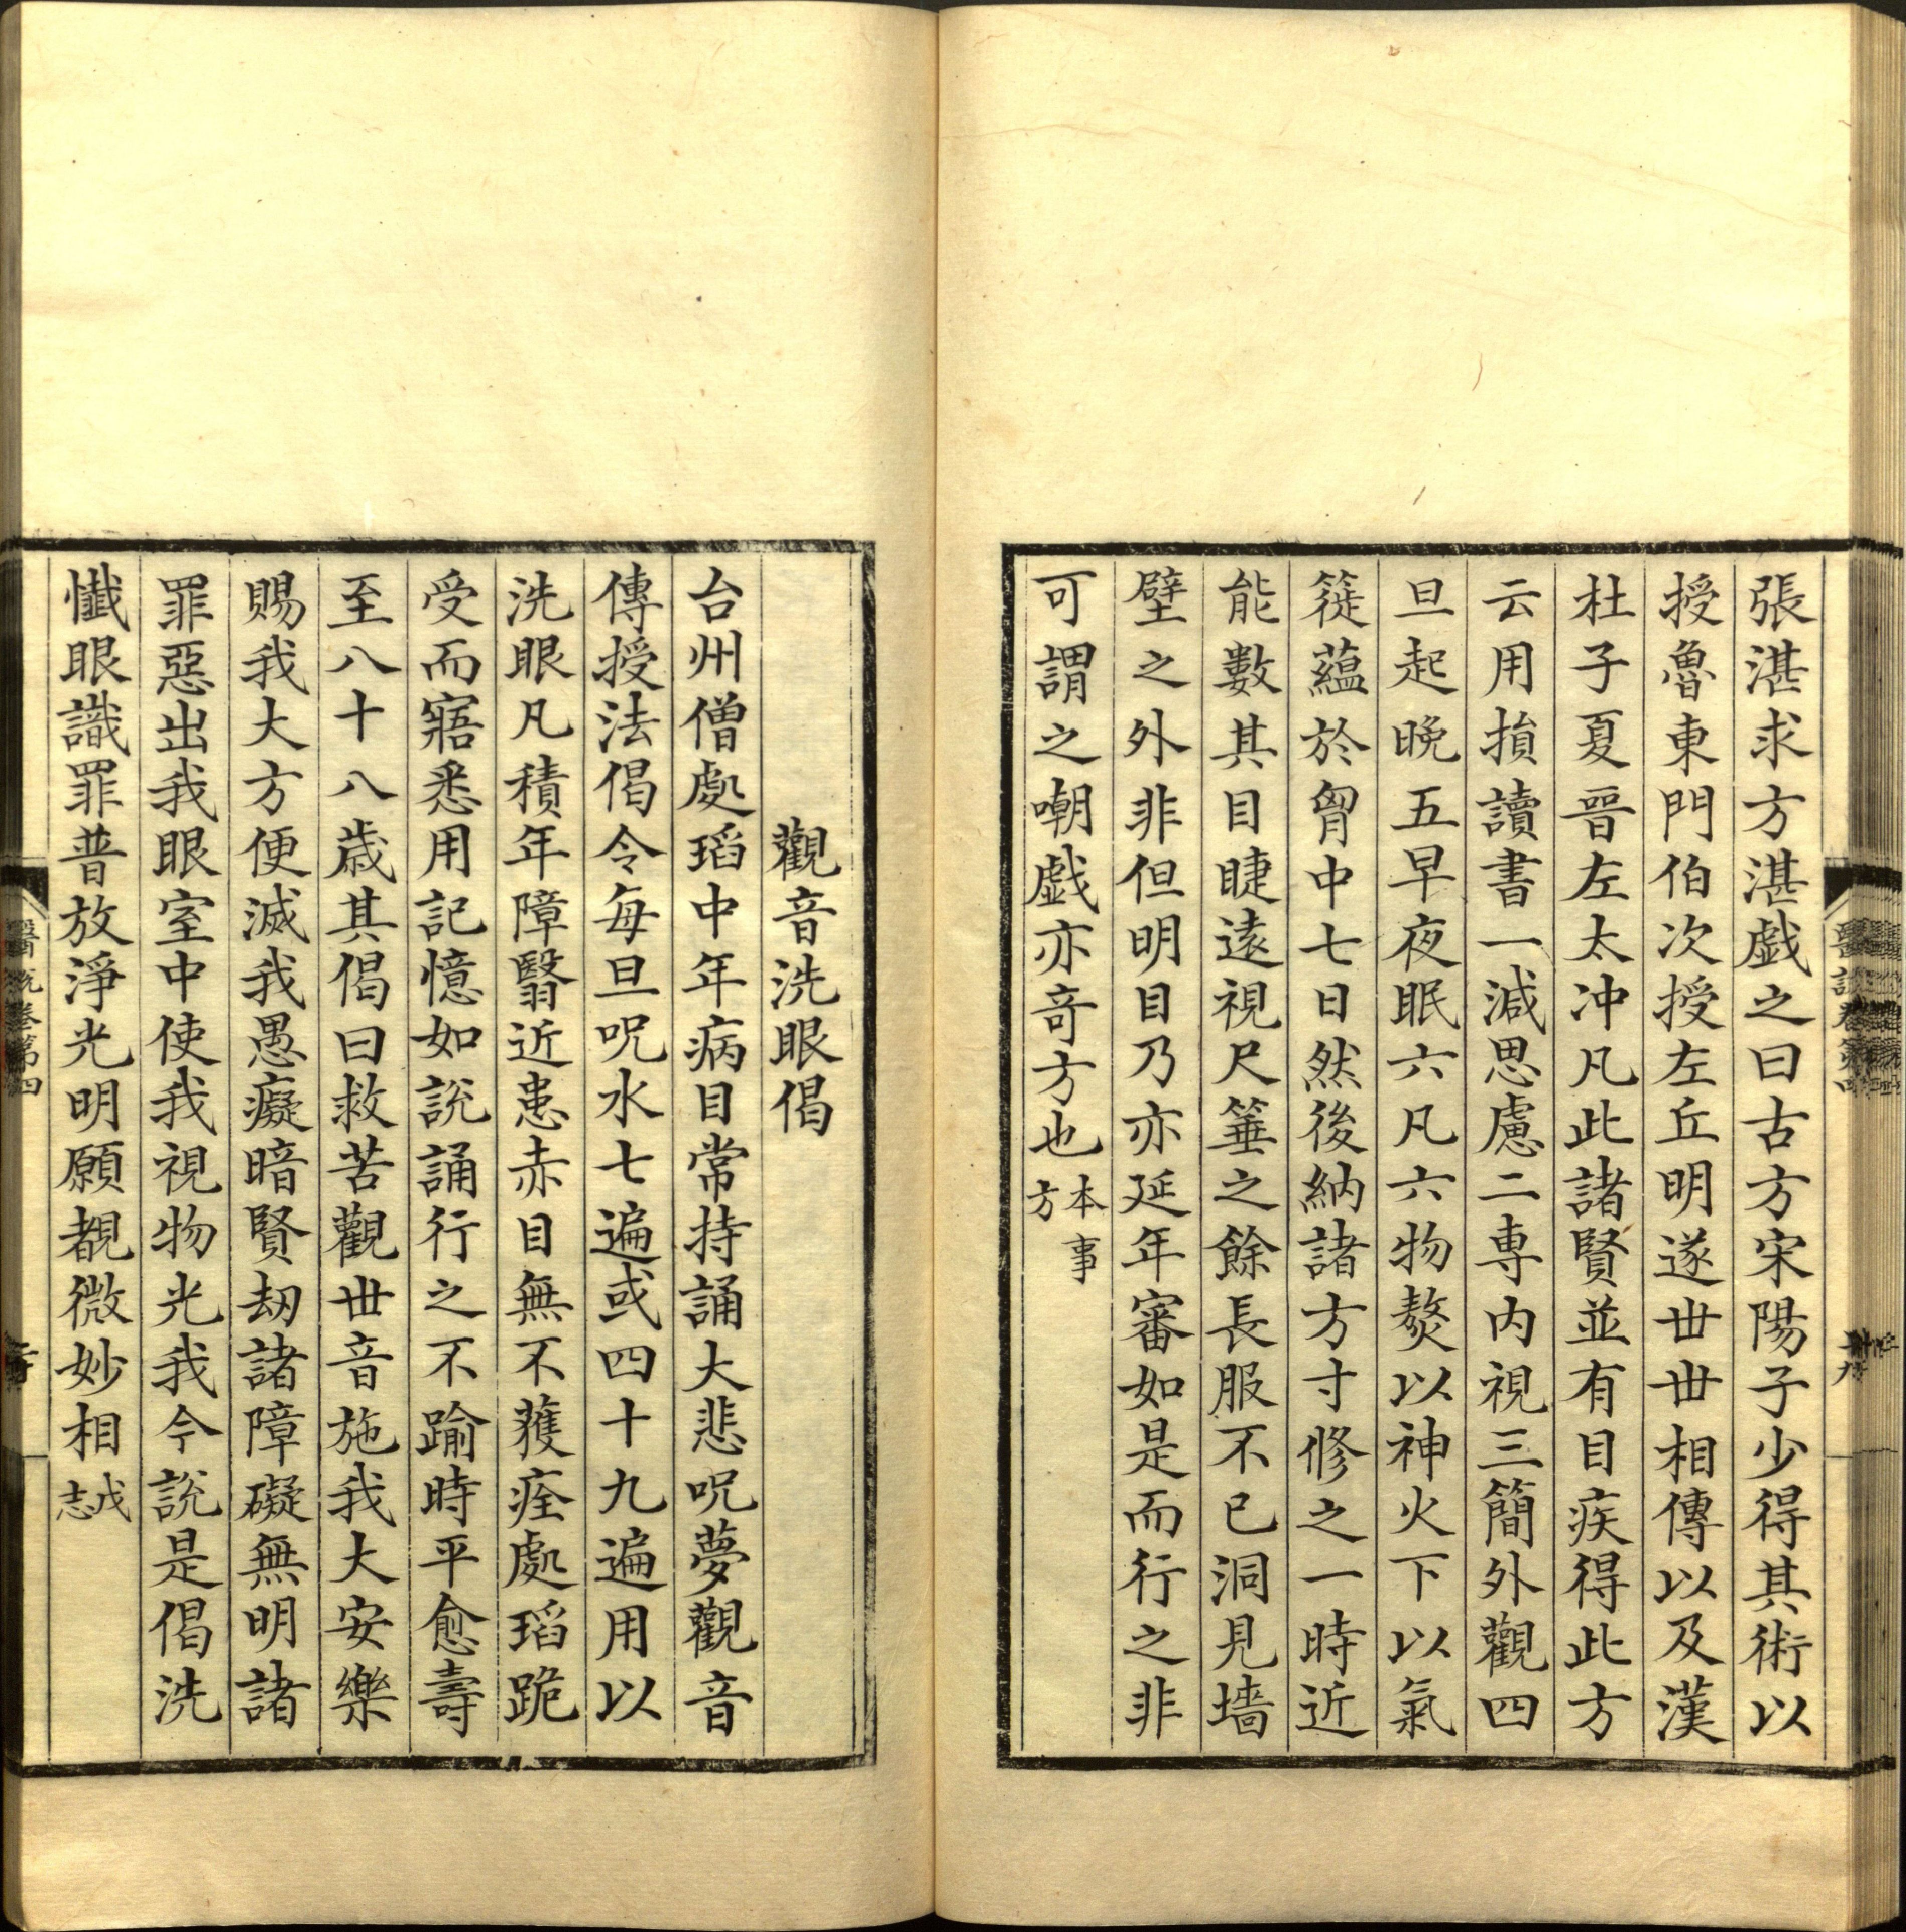 張湛求方湛戯之曰古方宋陽子少得其術以
授魯東門伯次授左丘明遂丗丗相傳以及漢
杜子夏晉左太冲凡此諸賢並有目疾得此方
云用損讀書一減思慮二専内視三簡外觀四
旦起晚五早夜眠六凡六物熬以神火下以氣
簁蘊於胷中七日然後納諸方寸修之一時近
能數其目睫遠視尺箠之餘長服不已洞見墻
壁之外非但明目乃亦延年審如是而行之非
可謂之嘲戯亦竒方也本事方
觀音洗眼偈
台州僧處瑫中年病目常持誦大悲呪夢觀音
傳授法偈令每旦呪水七遍或四十九遍用以
洗眼凡積年障翳近患赤目無不獲痊處瑫跪
受而寤悉用記憶如說誦行之不踰時平愈壽
至八十八歳其偈曰救苦觀丗音施我大安樂
賜我大方便滅我愚癡暗賢刼諸障礙無明諸
罪惡出我眼室中使我視物光我今說是偈洗
懺眼識罪普放淨光明願覩微妙相戊志
醫說卷第四